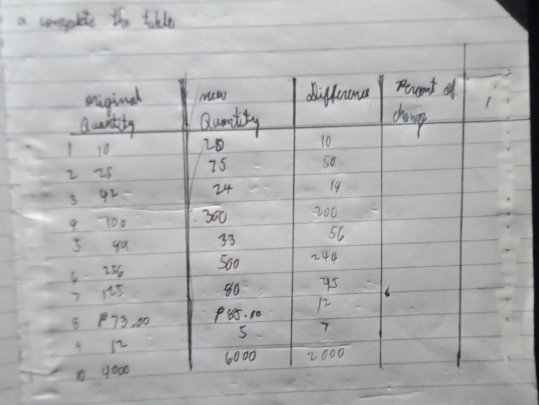 a complete the table
original Quantity new Quantity Difference Percent of change
1 10 20 10
2 25 75 50
3 42 24 18
4 100 300 200
5 33 56
6 256 500 244
7 125 80 45
8 ₱73.00 ₱85.00 12
9 12 5 7
10 4000 6000 2000